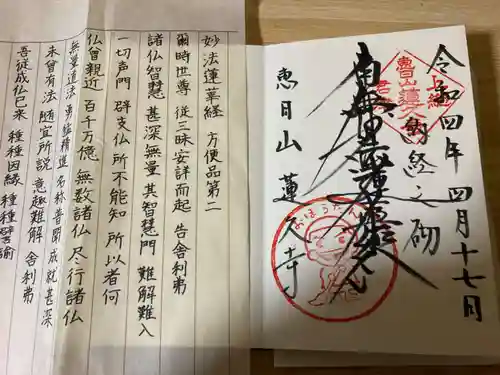 令和四年 四月十七日
納経之砌
南無妙法蓮華経
恵日山 蓮久寺
妙法蓮華経 方便品第二
爾時世尊 従三昧安詳而起 告舎利弗
諸仏智慧 甚深無量 其智慧門 難解難入
一切声聞 辟支仏所不能知 所以者何
仏曾親近 百千万億 無数諸仏 尽行諸仏
無量道法 勇猛精進 名称普聞 成就甚深
未曾有法 随宜所説 意趣難解 舎利弗
吾従成仏已来 種種因縁 種種譬諭